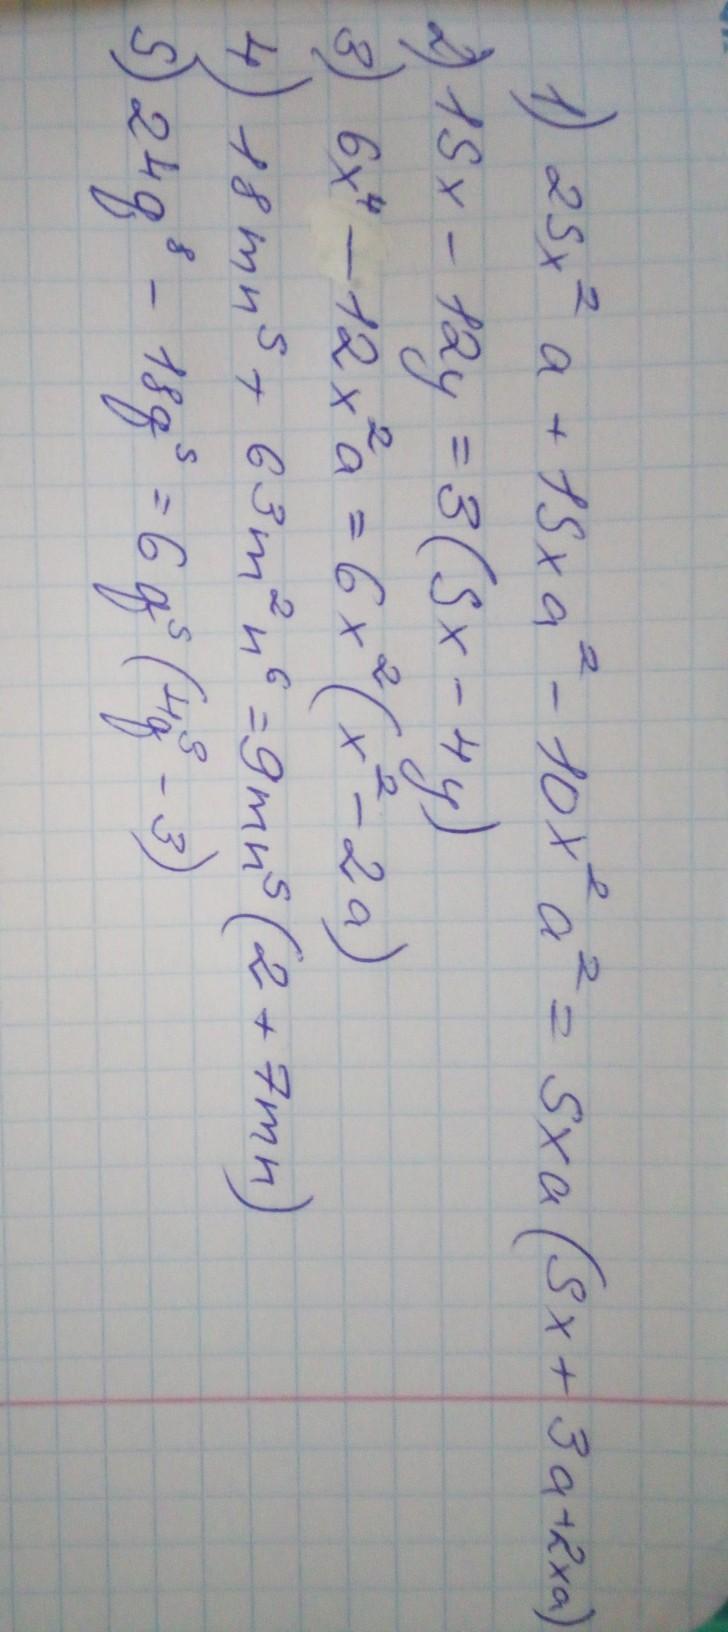 1) 25x² a + 15xa² - 10x² a² = 5xa(5x + 3a+2xa)
2) 15x - 12y = 3(5x - 4y)
3) 6x⁴ - 12x²a = 6x²(x² - 2a)
4) 18mn⁵ + 63m²n⁶ = 9mn⁵(2 + 7mn)
5) 24g⁸ - 18g⁵ = 6g⁵(4g³ - 3)